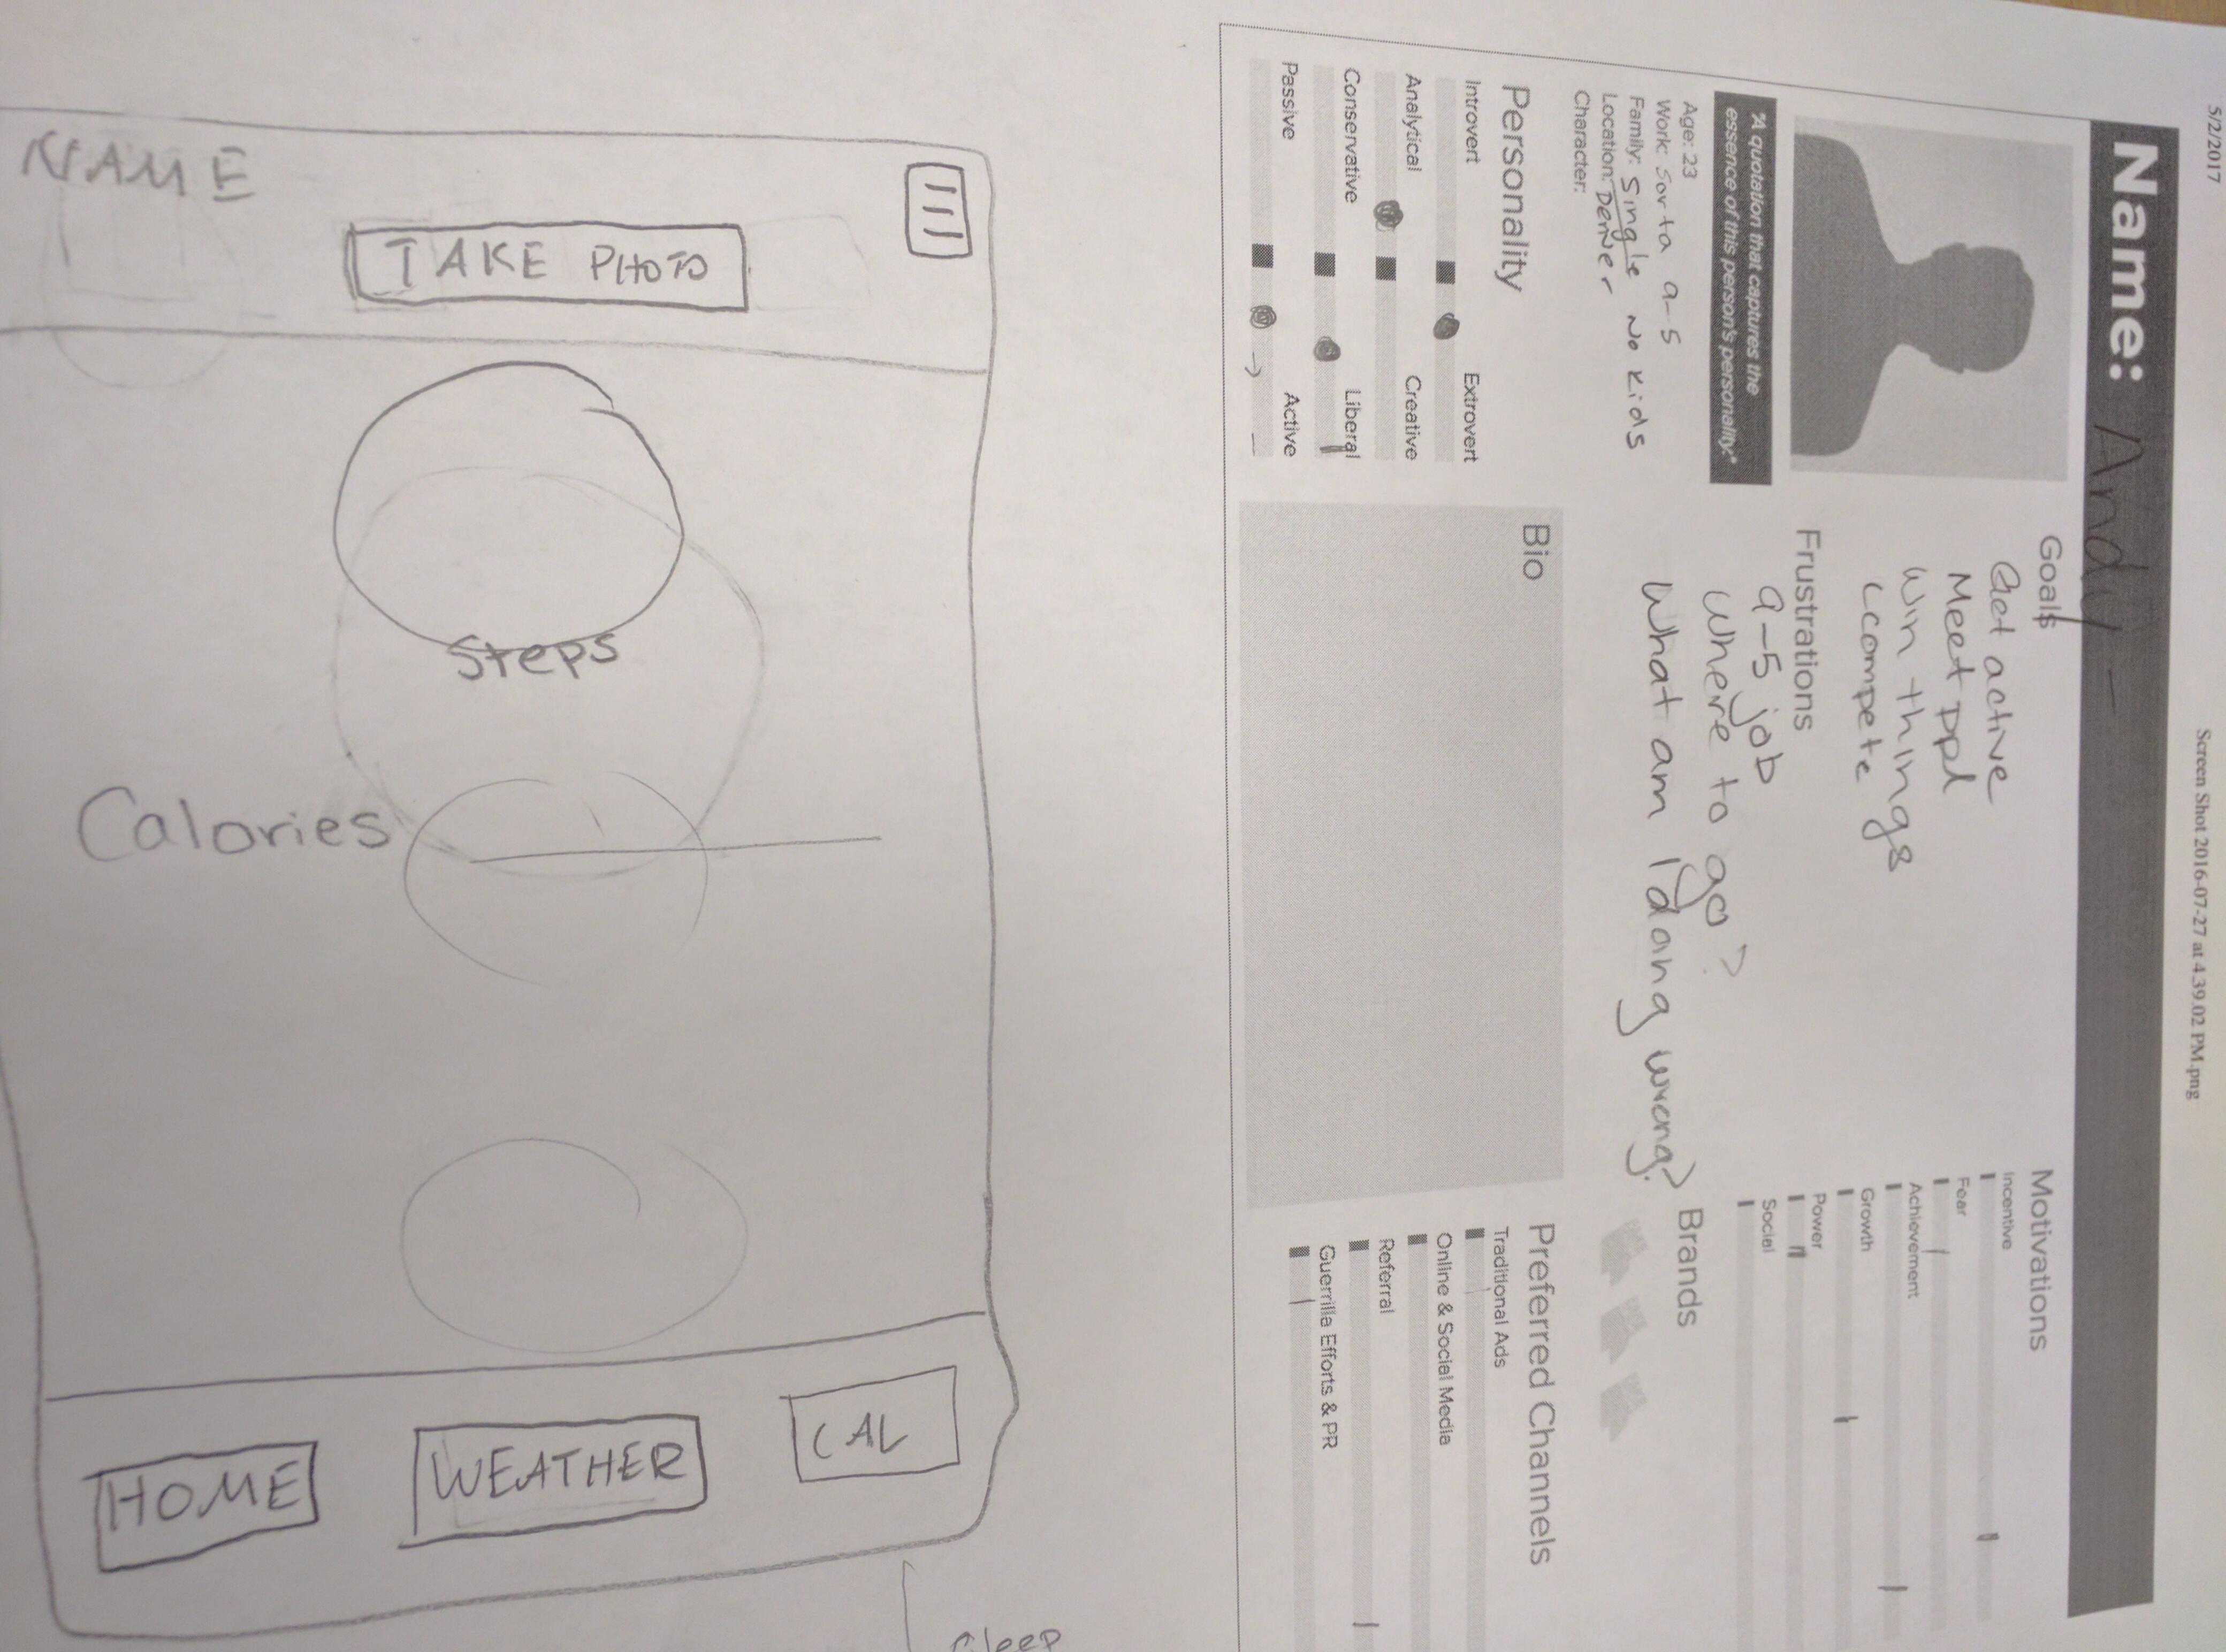 5/2/2017
Screen Shot 2016-07-27 at 4.39.02 PM.png
Name: Andy -
"A quotation that captures the
essence of this person's personality."
Age: 23
Work: Sorta 9-5
Family: Single No Kids
Location: Denver
Character:
Personality
Introvert Extrovert
Analytical Creative
Conservative Liberal
Passive Active
Goals
Get active
Meet ppl
Win things
compete
Frustrations
9-5 job
Where to go?
What am I doing wrong?
Bio
Motivations
Incentive
Fear
Achievement
Growth
Power
Social
Brands
Preferred Channels
Traditional Ads
Online & Social Media
Referral
Guerrilla Efforts & PR
NAME
TAKE PHOTO
Steps
Calories
HOME
WEATHER
CAL
Sleep